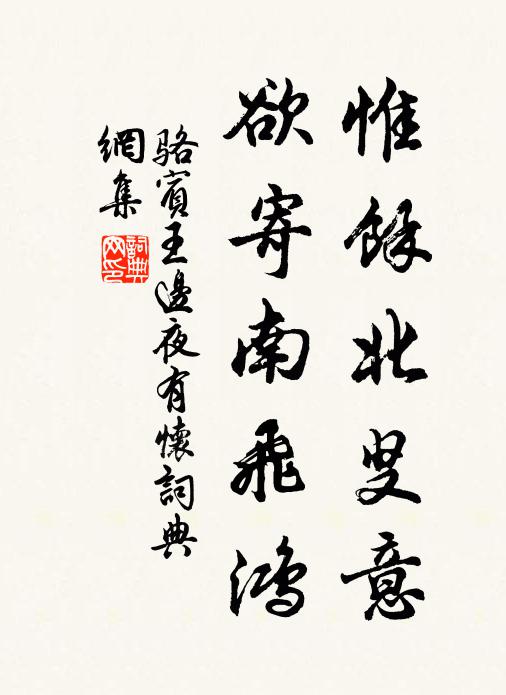 惟餘北叟意
欲寄南飛鴻
駱賓王邊夜有懷詞典
網集
詞典
网印